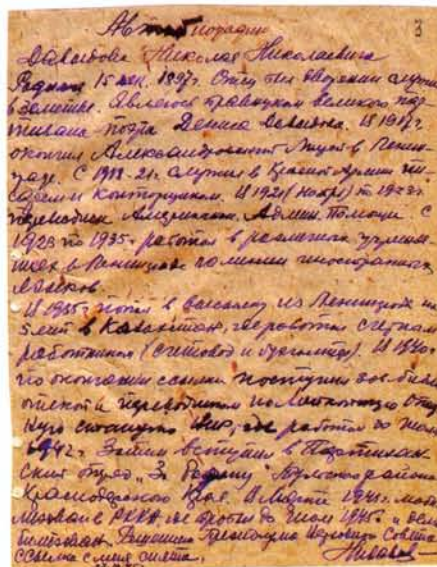 3
Автобиография
Давыдова Николая Николаевича
Родился 15 1897г. Отец был дворянин служил
в земстве. Являюсь правнуком великого пар-
тизана поэта Дениса Давыдова. В 1917г.
окончил Александровский Лицей в Ленин-
граде. С 21 служил в Красной Армии пи-
сарем и конторщиком. В по 1923г.
переводчик Американ. Админ. Помощи. С
1923 по 1935г. работал в различных учрежде-
ниях в Ленинграде по линии иностранных
языков.
В 1935г. попал в высылку из Ленинграда на
5 лет в Казахстан, где работал счетным
работником (счетовод и бухгалтер). В 1940г.
по окончании ссылки поступил
и переводчиком на опыт-
ную станцию где работал до
1942г. Затем вступил в Партизан-
ский отряд „За Родину" района
Краснодарского Края. В Марте 1943г. моби-
лизован в РККА, где пробыл до Июля 1945г. и демо-
билизован. Решением Президиума Верховного Совета
ссылка с меня снята.